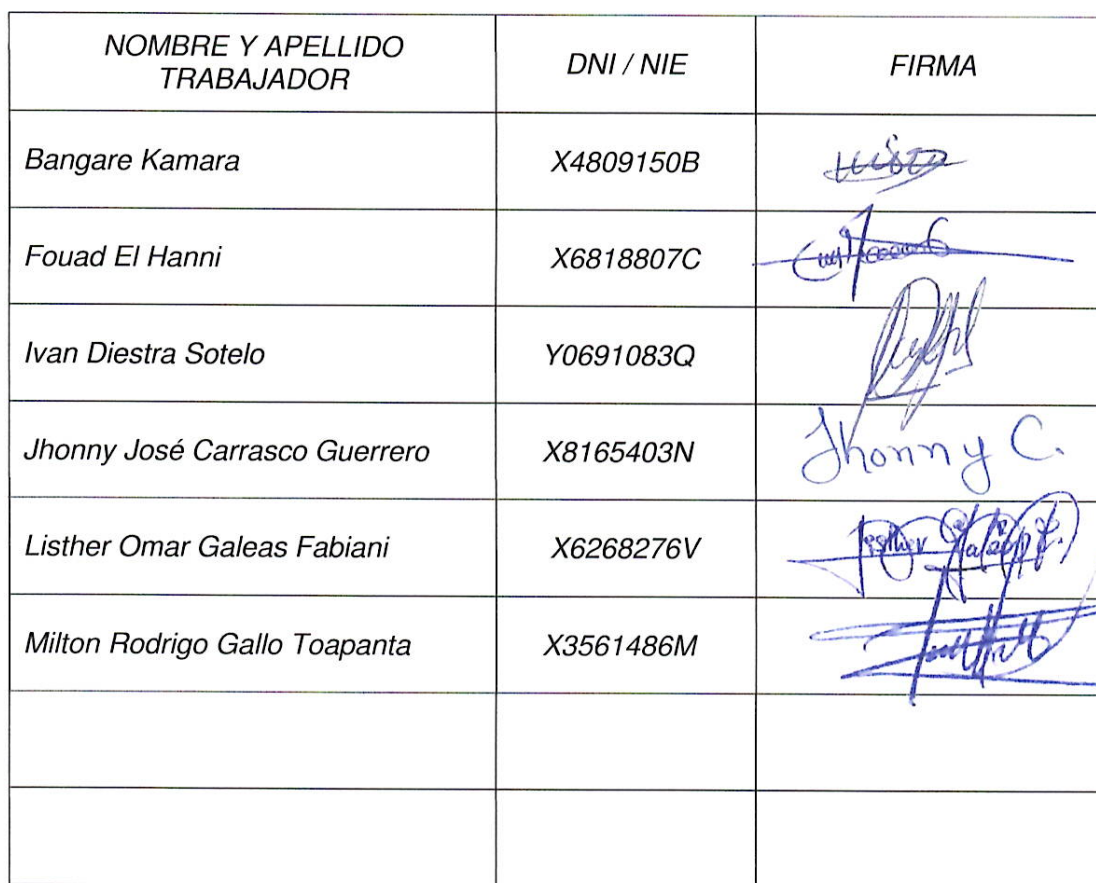 NOMBRE Y APELLIDO TRABAJADOR DNI / NIE FIRMA
Bangare Kamara X4809150B
Fouad El Hanni X6818807C
Ivan Diestra Sotelo Y0691083Q
Jhonny José Carrasco Guerrero X8165403N Jhonny C.
Listher Omar Galeas Fabiani X6268276V
Milton Rodrigo Gallo Toapanta X3561486M